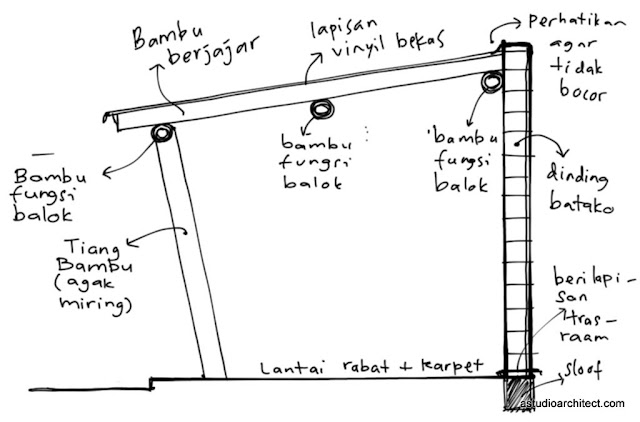 Bambu
berjajar
lapisan
vinyil bekas
Perhatikan
agar
tidak
bocor
Bambu
fungsi
balok
bambu
fungri
balok
bambu
fungsi
balok
dinding
batako
Tiang
Bambu
(agak
miring)
beri lapi-
san
tras-
raam
Lantai rabat + karpet
sloof
astudioarchitect.com